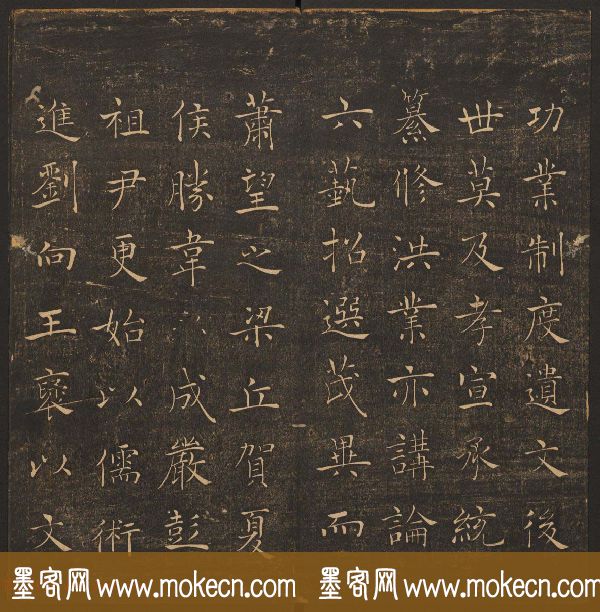 功業制度遺文後
世莫及孝宣承統
纂修洪業亦講論
六藝招選茂異而
蕭望之梁丘賀夏
侯勝韋成嚴彭
祖尹更始以儒術
進劉向王褒以文
墨客网 www.mokecn.com 墨客网 www.mokecn.com